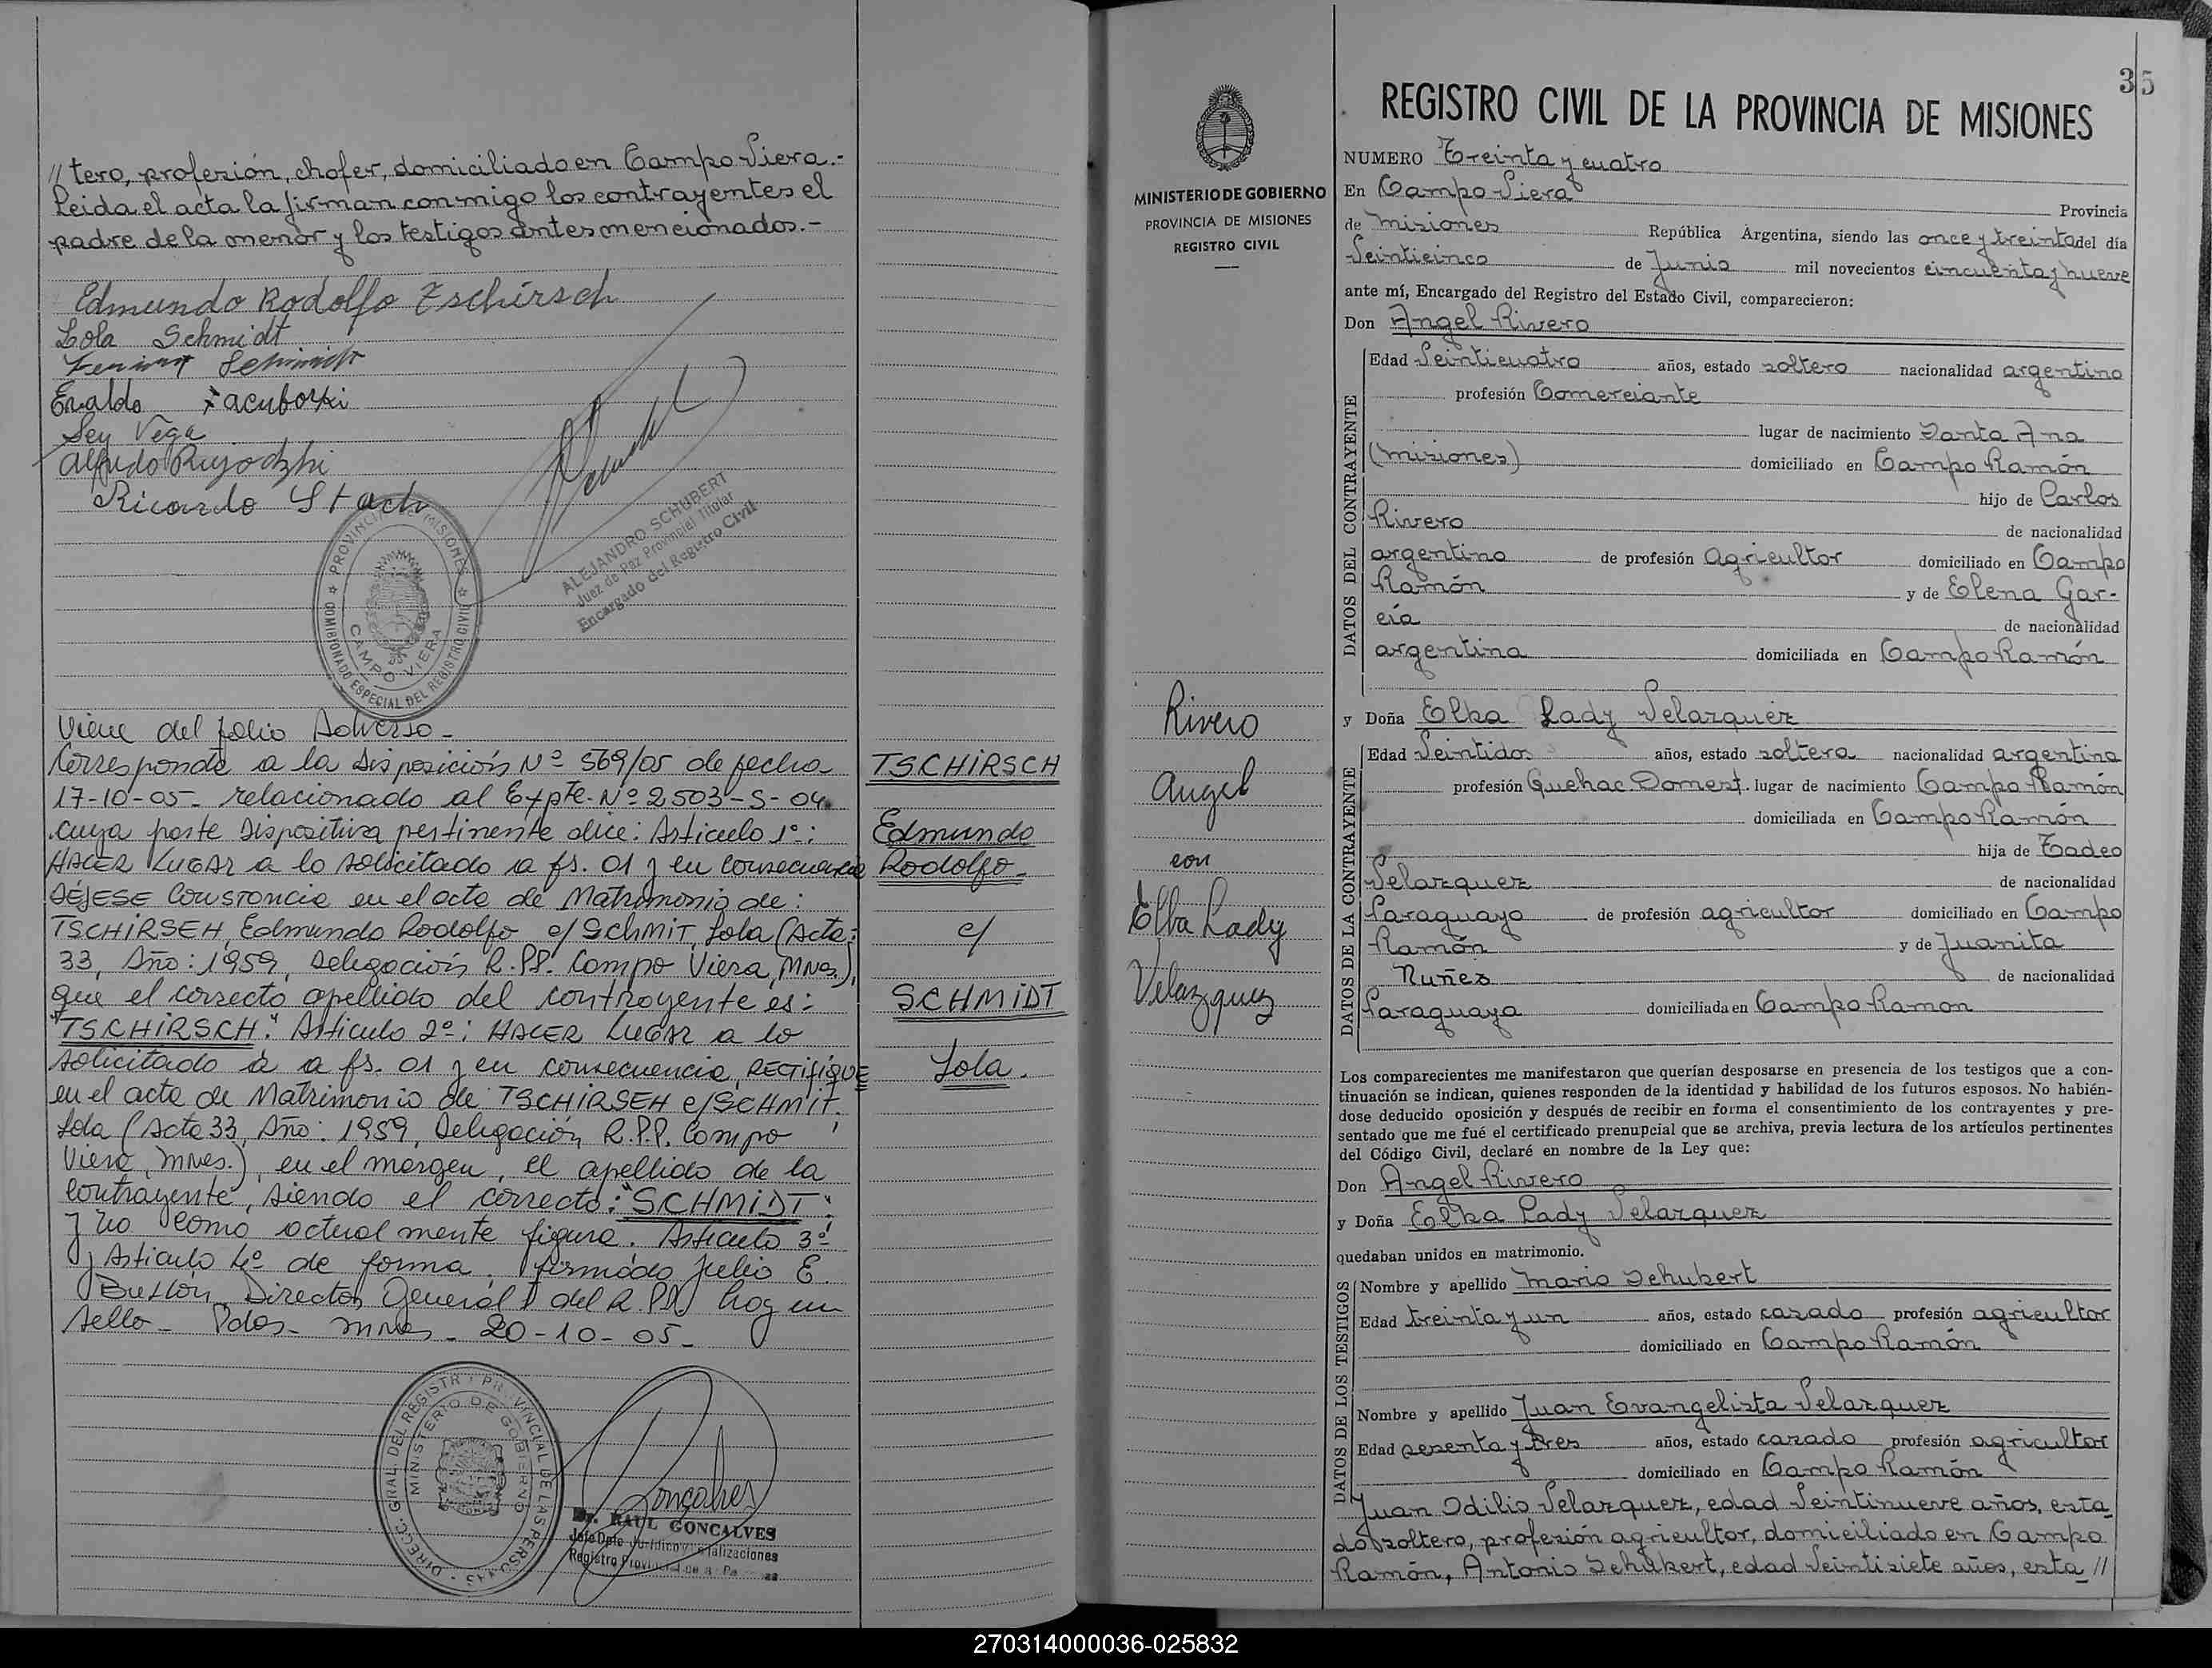 // tero, profesión, chofer, domiciliado en Campo Viera.-
Leida el acta la firman conmigo los contrayentes el
padre de la menor y los testigos antes mencionados.-
Edmundo Rodolfo Tschirsch
Lola Schmidt
Schmidt
Vega
Alfredo
Ricardo Stach
ALEJANDRO SCHUBERT
Juez de Paz Provincial Titular
Encargado del Registro Civil
PROVINCIA DE MISIONES
COMISIONADO ESPECIAL DEL REGISTRO CIVIL
CAMPO VIERA
Viene del folio Adverso -
Corresponde a la Disposición Nº 569/05 de fecha
17-10-05- relacionado al Expte. Nº 2503-S-04.
cuya parte Dispositiva pertinente dice: Articulo 1º:
HACER LUGAR a lo solicitado a fs. 01 y en consecuencia
DÉJESE Constancia en el acta de Matrimonio de:
TSCHIRSEH, Edmundo Rodolfo c/ SCHMIT, Lola (Acta:
33, Año: 1959, Delegación R.PP. Campo Viera, Mnes.),
que el correcto apellido del contrayente es:
"TSCHIRSCH". Articulo 2º: HACER LUGAR a lo
solicitado a a fs. 01 y en consecuencia, RECTIFIQUE
en el acta de Matrimonio de: TSCHIRSEH c/SCHMIT,
Lola (Acta 33, Año: 1959, Delegación, R.P.P. Campo
Viera, Mnes.), en el margen, el apellido de la
contrayente, siendo el correcto: "SCHMIDT",
y no como actualmente figura. Articulo 3º
y Articulo 4º de forma. firmado Julio E.
Director General del R.PP. hay un
sello - Pdas - Mnes - 20-10-05-
TSCHIRSCH
Edmundo
Rodolfo-
c/
SCHMIDT
Lola.
DIRECC. GRAL. DEL REGISTRO PROVINCIAL DE LAS PERSONAS
MINISTERIO DE GOBIERNO
Gonçalves
Dr. RAUL GONCALVES
Jefe Dpto Jurídico y
Registro Provincial de
35
MINISTERIO DE GOBIERNO
PROVINCIA DE MISIONES
REGISTRO CIVIL
Rivero
Angel
con
Elba Lady
Velazquez
REGISTRO CIVIL DE LA PROVINCIA DE MISIONES
NUMERO Treinta y cuatro
En Campo Viera Provincia
de Misiones República Argentina, siendo las once y treinta del día
Veinticinco de Junio mil novecientos cincuenta y nueve
ante mí, Encargado del Registro del Estado Civil, comparecieron:
Don Angel Rivero
DATOS DEL CONTRAYENTE
Edad Veinticuatro años, estado soltero nacionalidad argentino
profesión Comerciante
lugar de nacimiento Santa Ana
(Misiones) domiciliado en Campo Ramón
hijo de Carlos
Rivero de nacionalidad
argentino de profesión Agricultor domiciliado en Campo
Ramón y de Elena Gar-
cía de nacionalidad
argentina domiciliada en Campo Ramón
y Doña Elba Lady Velazquez
DATOS DE LA CONTRAYENTE
Edad Veintidos años, estado soltera nacionalidad argentina
profesión Quehac. Domest. lugar de nacimiento Campo Ramón
domiciliada en Campo Ramón
hija de Tadeo
Velazquez de nacionalidad
Paraguayo de profesión agricultor domiciliado en Campo
Ramón y de Juanita
Nuñez de nacionalidad
Paraguaya domiciliada en Campo Ramon
Los comparecientes me manifestaron que querían desposarse en presencia de los testigos que a con-
tinuación se indican, quienes responden de la identidad y habilidad de los futuros esposos. No habién-
dose deducido oposición y después de recibir en forma el consentimiento de los contrayentes y pre-
sentado que me fué el certificado prenupcial que se archiva, previa lectura de los artículos pertinentes
del Código Civil, declaré en nombre de la Ley que:
Don Angel Rivero
y Doña Elba Lady Velazquez
quedaban unidos en matrimonio.
DATOS DE LOS TESTIGOS
Nombre y apellido Mario Schubert
Edad treinta y un años, estado casado profesión agricultor
domiciliado en Campo Ramón
Nombre y apellido Juan Evangelista Velazquez
Edad sesenta y tres años, estado casado profesión agricultor
domiciliado en Campo Ramón
Juan Odilio Velazquez, edad Veintinueve años, esta_
do soltero, profesión agricultor, domiciliado en Campo
Ramón, Antonio Schubert, edad Veintisiete años, esta_//
270314000036-025832